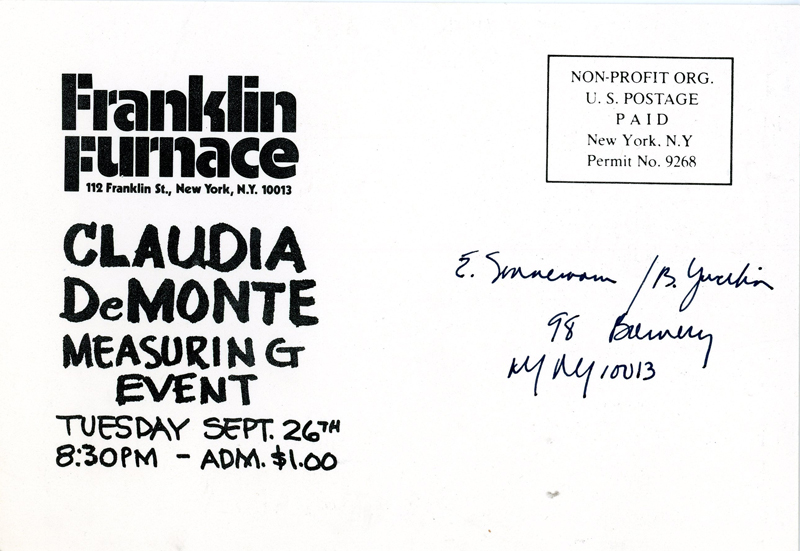 Franklin
Furnace
112 Franklin St., New York, N.Y. 10013
CLAUDIA
DeMONTE
MEASURING
EVENT
TUESDAY SEPT. 26TH
8:30PM - ADM. $1.00
NON-PROFIT ORG.
U. S. POSTAGE
PAID
New York, N.Y
Permit No. 9268
E. / B.
98 Bowery
NY NY 10013